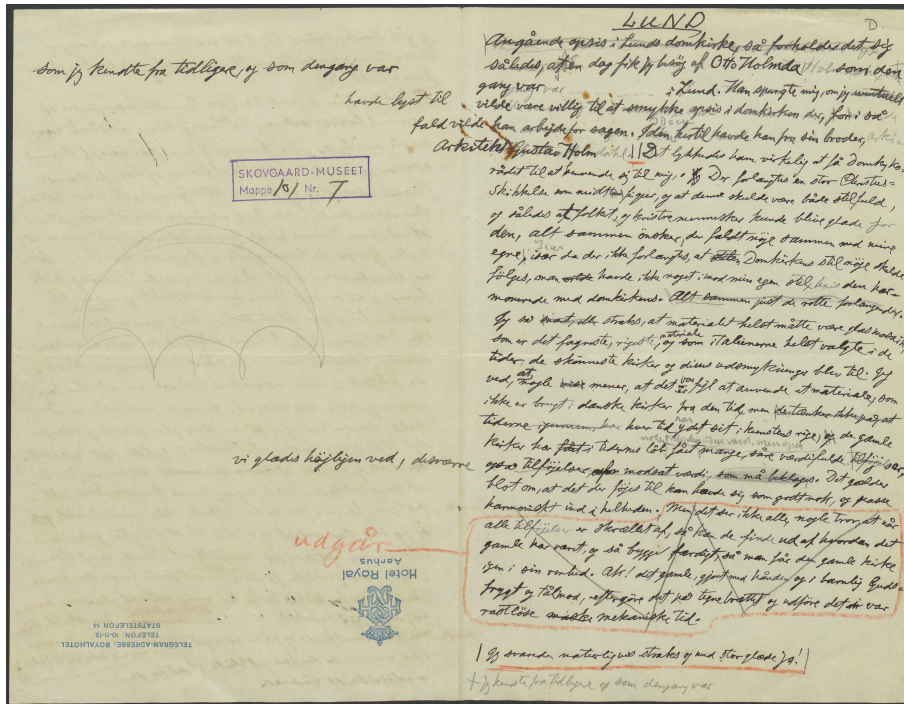 som jeg kendte fra tidligere, og som dengang var
havde lyst til
SKOVGAARD-MUSEET
Mappe 101 Nr. 7
vi glædes höjligen ved, desværre
udgår
Hotel Royal
Aarhus
TELEGRAM-ADRESSE: ROYALHOTEL
TELEFON: 10-11-12
STATSTELEFON 14
LUND
D.
Angående apsis i Lunds domkirke, så forholder det sig
således, at en dag fik jeg besög af Otto Holmdahl som den
gang var i Lund. Han spurgte mig, om jeg eventuelt
vilde være villig til at smykke apsis i domkirken der, for i så
fald vilde han arbejde for sagen. Ideen hertil havde han fra sin broder,
Arkitekt Gustav Holmdahl. Det lykkedes ham virkelig at få Domkyrko-
rådet til at henvende sig til mig. Der forlangtes en stor Christus-
Skikkelse som midtfigur, og at denne skulde være både stilfuld,
og således at folket, og kristne mennesker kunde blive glade for
den, alt sammen önsker, der faldt nöje sammen med mine
egne, især da der ikke forlangtes, at Domkirkens stil nöje skulde
fölges, man havde ikke noget imod min egen stil hvis den har-
monerede med domkirkens. Alt sammen just de rette forlangender.
Jeg så straks, at materialet helst måtte være glasmosaik,
som er det fagreste, rigeste, materiale og som italienerne helst valgte i de
tider, de skönneste kirker og disses udsmykninger blev til. Jeg
ved, at nogle mener, at det var fejl at anvende et materiale, som
ikke er brugt i danske kirker fra den tid, men de tænker ikke på, at
tiderne igennem, har hver tid ydet sit i kunstens rige, og de gamle
kirker har i tidernes löb fået mange, såre værdifulde tilföjelser,
også tilföjelser af modsat værdi, som må beklages. Det gælder
blot om, at det der föjes til kan hævde sig som godt nok, og passe
harmonisk ind i helheden. Men det ser ikke alle, nogle tror, at når
alle tilföjelser er skrællet af, så kan de finde ud af hvordan det
gamle har været, og så bygge færdigt, så man får den gamle kirke
igen i sin renhed. Ak! det gamle, gjort med hånden og i barnlig Guds-
frygt og tålmod, eftergöre det på tegnebrættet og udföre det i vor
rastlöse mekaniske tid.
Jeg svarede naturligvis straks og med stor glæde ja!
+ jeg kendte fra tidligere og som dengang var